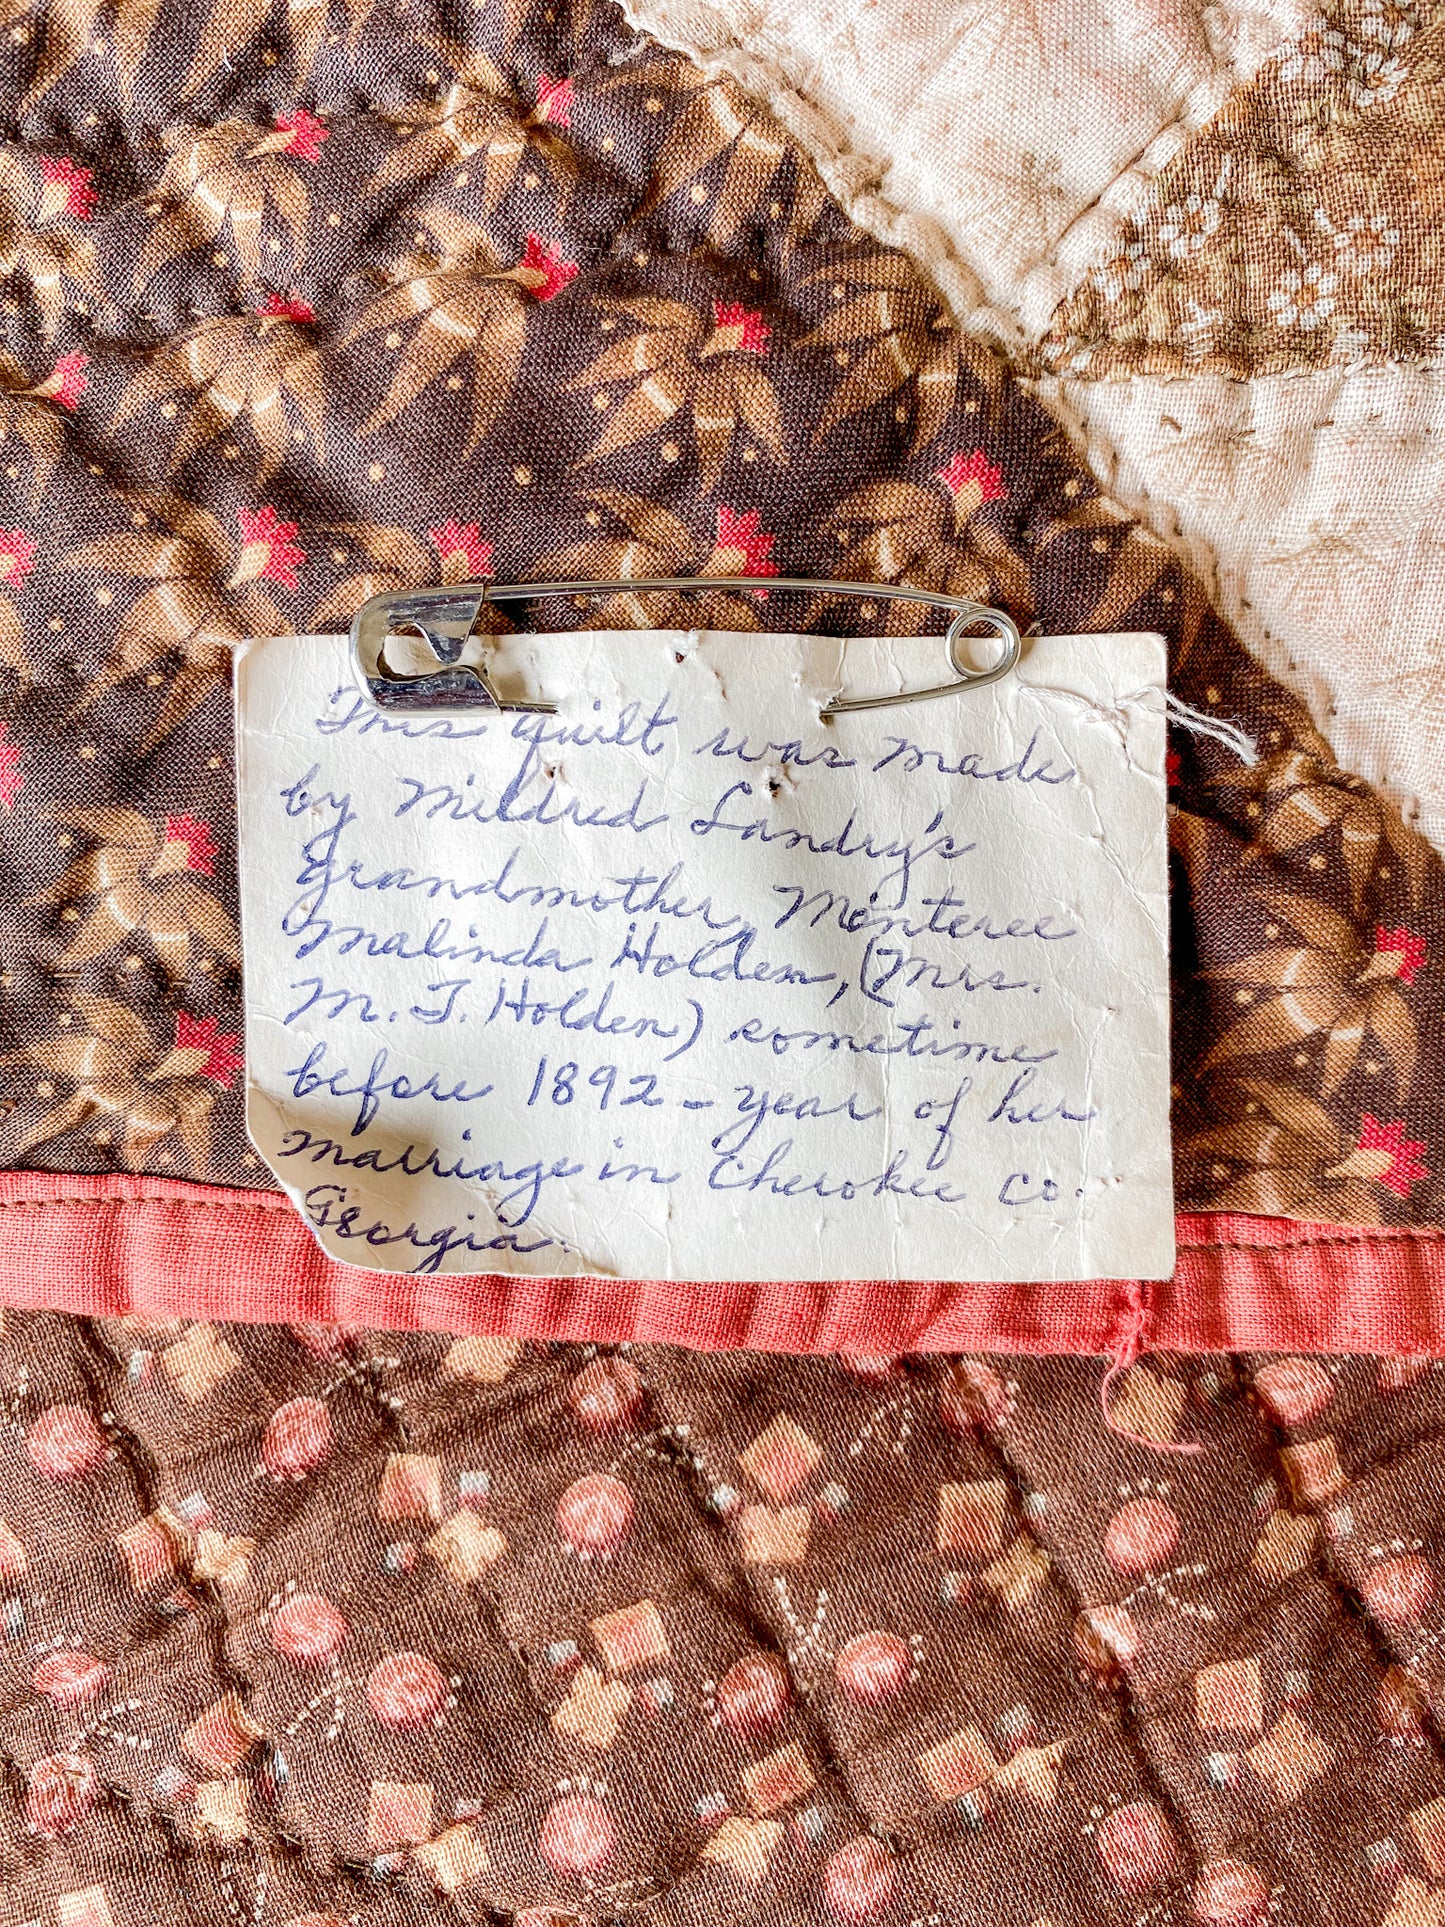 This quilt was made
by Mildred Landry's
grandmother, Monteree
Malinda Holden, (Mrs.
M. J. Holden) sometime
before 1892 - year of her
marriage in Cherokee Co.
Georgia.